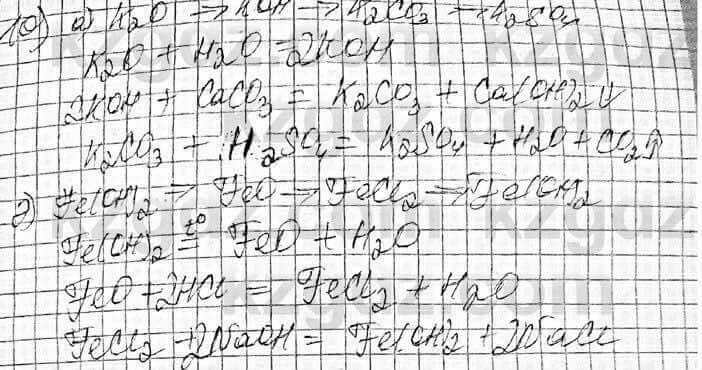 10) а) K₂O → KOH → K₂CO₃ → K₂SO₄
K₂O + H₂O = 2KOH
2KOH + CaCO₃ = K₂CO₃ + Ca(OH)₂↓
K₂CO₃ + H₂SO₄ = K₂SO₄ + H₂O + CO₂↑
г) Fe(OH)₂ → FeO → FeCl₂ → Fe(OH)₂
Fe(OH)₂ =^{t°} FeO + H₂O
FeO + 2HCl = FeCl₂ + H₂O
FeCl₂ + 2NaOH = Fe(OH)₂ + 2NaCl